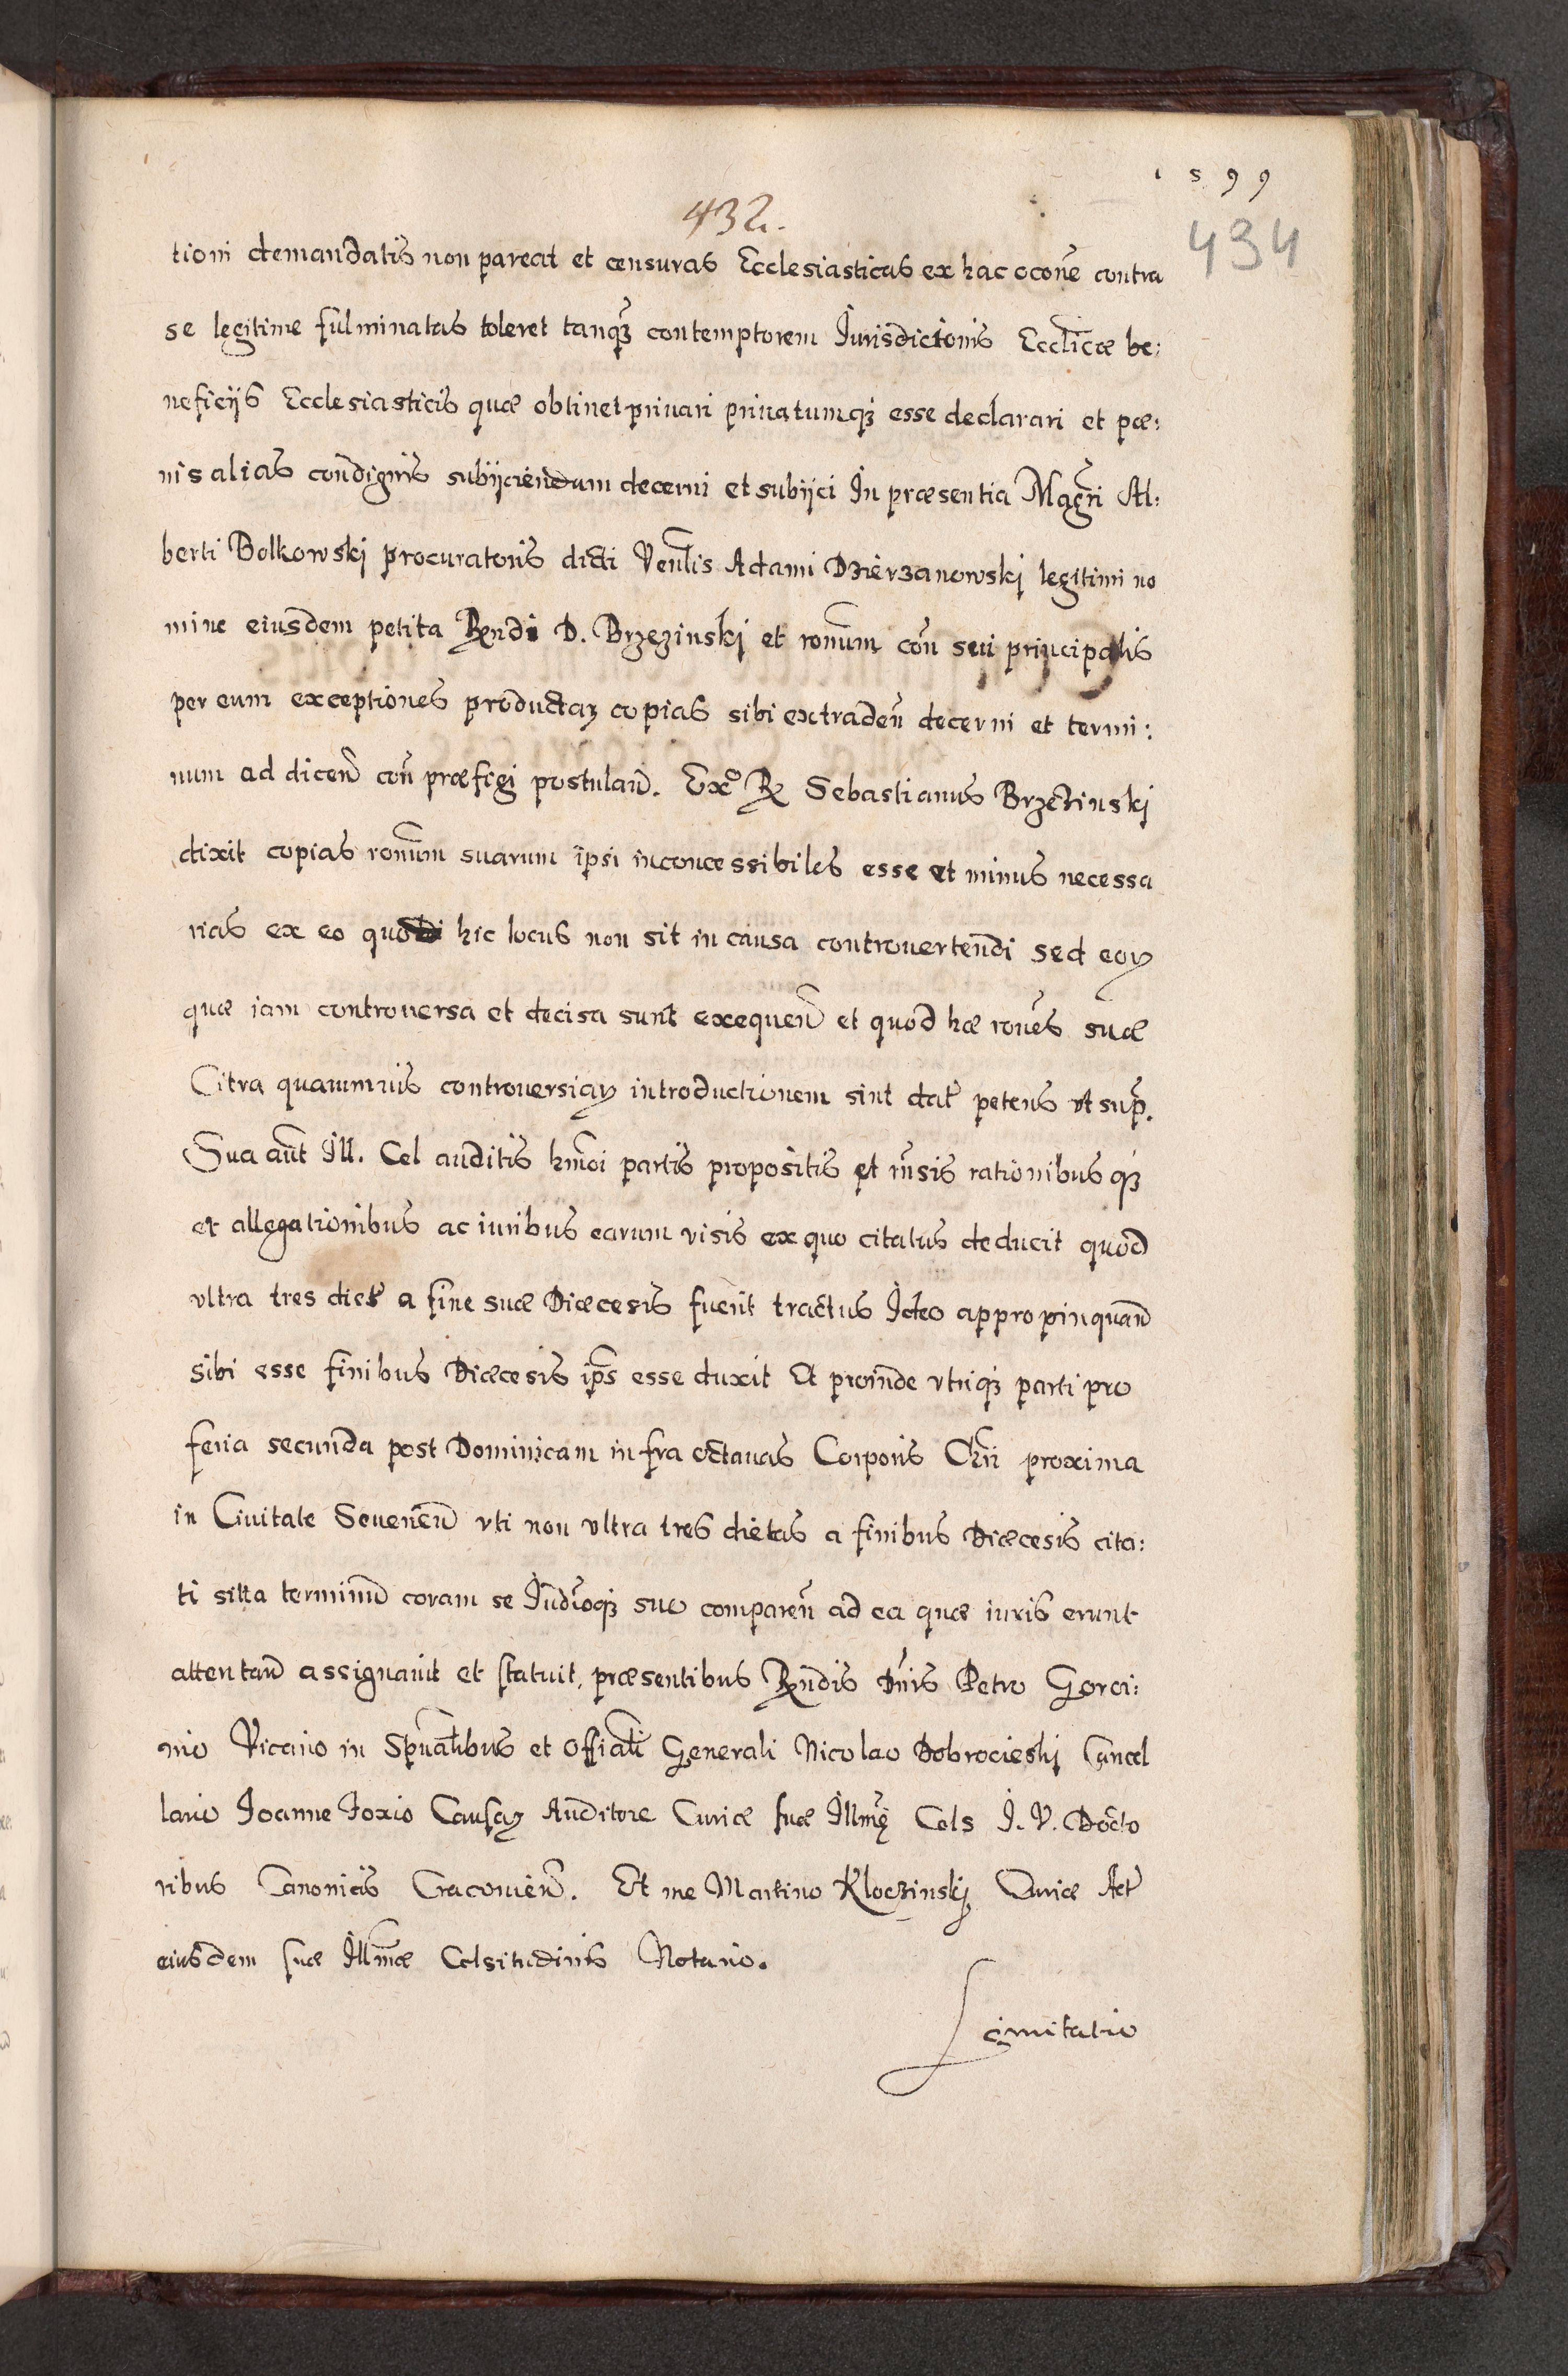 1599
432.
434
tioni demandatis non pareat et censuras Ecclesiasticas ex hac occone contra
se legitime fulminatas toleret tanq3 contemptorem Jurisdictionis Ecclicæ be:
neficijs Ecclesiasticis quæ obtinet priuari priuatumq3 esse declarari et pœ:
nis alias condignis subijciendum decerni et subijci In præsentia Magri Al:
berti Bolkowskj procuratoris dicti Venlis Adami Dzierzanowskj legitimi no
mine eiusdem petita Rndi D. Brzezinskj et ronum con sui principalis
per eum exceptiones productaꝝ copias sibi extraden decerni et termi:
num ad dicen con præfigi postulan. Exo R Sebastianus Brzezinskj
dixit copias ronum suarum ipsi inconcessibiles esse et minus necessa
rias ex eo quod hic locus non sit in causa controuertendi sed eoꝝ
quæ iam controuersa et decisa sunt exequen et quod hæ rones suæ
Citra quamuis controuersiaꝝ introductionem sint dat petens ut sup.
Sua aut Ill. Cel auditis hmoi partis propositis et rnsis rationibusq3
et allegationibus ac iuribus earum visis ex quo citatus deducit quod
vltra tres diet a fine suæ Diæcesis fuerit tractus Ideo appropinquand
sibi esse finibus Diæcesis ips esse duxit Et proinde vtriq3 parti pro
feria secunda post Dominicam infra octauas Corporis Chri proxima
in Ciuitate Seuerien vti non vltra tres dietas a finibus Diæcesis cita:
ti sitta terminum coram se Iudicioq3 suo comparen ad ea quæ iuris erunt
attentan assignauit et statuit, præsentibus Rndis Dnis Petro Gorci:
nio Vicario in Spualibus et Officiali Generali Nicolao Dobrocieskj Cancel
lario Joanne Foxio Causaꝝ Auditore Curiæ suæ Illmę Cels J. V. Docto
ribus Canonicis Cracouien. Et me Martino Kloczinskj Curiæ Act
eiusdem suæ Illmæ Celsitudinis Notario.